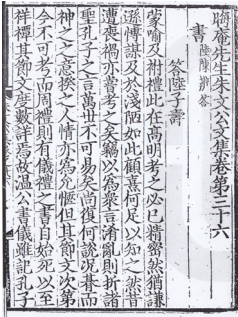 晦庵先生朱文公文集卷第三十六
書 陸陳辯答
答陸子壽
蒙喻及祔禮此在高明考之必已精密然猶謙
遜博謀及於淺陋如此顧熹何足以知之然昔
遭喪禍亦嘗考之矣竊以為衆言淆亂則折諸
聖孔子之言萬世不可易矣尚復何說況朞而
神之之意揆之人情亦為允愜但其節文次第
今不可考而周禮則有儀禮之書自始死以至
祥禫其節文度數詳焉故溫公書儀雖記孔子